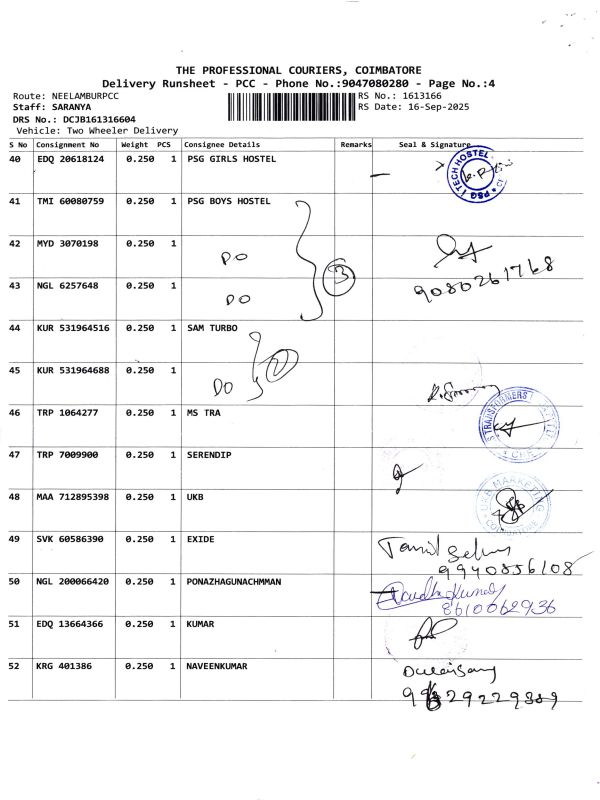 THE PROFESSIONAL COURIERS, COIMBATORE
Delivery Runsheet - PCC - Phone No.:9047080280 - Page No.:4
Route: NEELAMBURPCC
RS No.: 1613166
Staff: SARANYA
RS Date: 16-Sep-2025
DRS No.: DCJB161316604
Vehicle: Two Wheeler Delivery
S No Consignment No Weight PCS Consignee Details Remarks Seal & Signature
40 EDQ 20618124 0.250 1 PSG GIRLS HOSTEL
PSG TECH HOSTEL
41 TMI 60080759 0.250 1 PSG BOYS HOSTEL
42 MYD 3070198 0.250 1
DO
3
9080261768
43 NGL 6257648 0.250 1
DO
44 KUR 531964516 0.250 1 SAM TURBO
2
45 KUR 531964688 0.250 1
DO
46 TRP 1064277 0.250 1 MS TRA
TRANSFORMERS
47 TRP 7009900 0.250 1 SERENDIP
48 MAA 712895398 0.250 1 UKB
UKB MARKETING
COIMBATORE
49 SVK 60586390 0.250 1 EXIDE
Tamil Selvan
9940856108
50 NGL 200066420 0.250 1 PONAZHAGUNACHMMAN
8610062936
51 EDQ 13664366 0.250 1 KUMAR
52 KRG 401386 0.250 1 NAVEENKUMAR